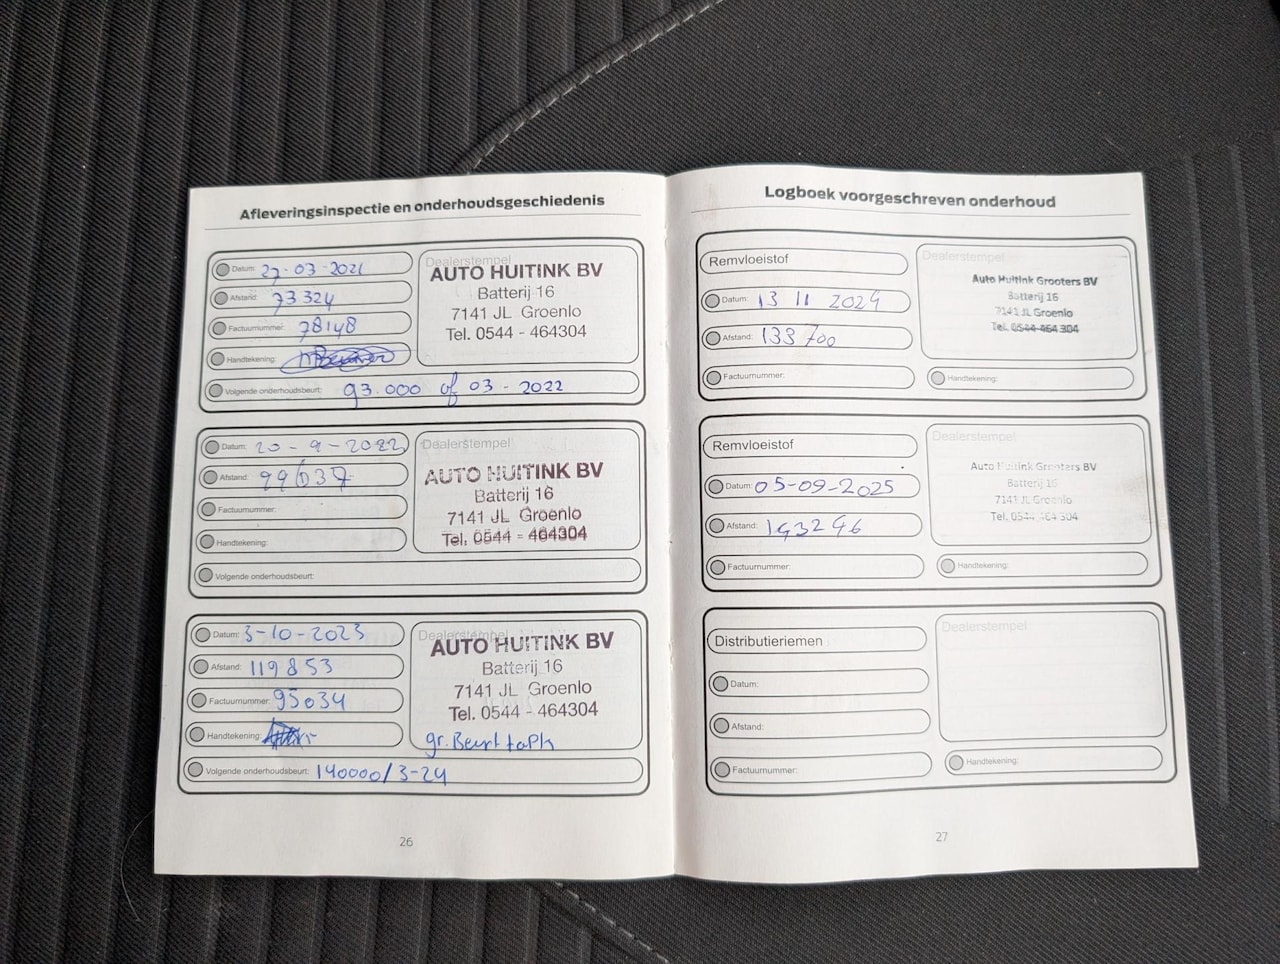 Afleveringsinspectie en onderhoudsgeschiedenis
Datum: 27-03-2021
Afstand: 73324
Factuurnummer: 78148
Handtekening:
Volgende onderhoudsbeurt: 93.000 of 03-2022
Dealerstempel
AUTO HUITINK BV
Batterij 16
7141 JL Groenlo
Tel. 0544 - 464304
Datum: 20-9-2022
Afstand: 99637
Factuurnummer:
Handtekening:
Volgende onderhoudsbeurt:
Dealerstempel
AUTO HUITINK BV
Batterij 16
7141 JL Groenlo
Tel. 0544 - 464304
Datum: 3-10-2023
Afstand: 119853
Factuurnummer: 95034
Handtekening:
Volgende onderhoudsbeurt: 140000/3-24
Dealerstempel
AUTO HUITINK BV
Batterij 16
7141 JL Groenlo
Tel. 0544 - 464304
gr. Beurt + apk
26
Logboek voorgeschreven onderhoud
Remvloeistof
Datum: 13 11 2024
Afstand: 133700
Factuurnummer:
Dealerstempel
Auto Huitink Grooters BV
Batterij 16
7141 JL Groenlo
Tel. 0544-464 304
Handtekening:
Remvloeistof
Datum: 05-09-2025
Afstand: 143246
Factuurnummer:
Dealerstempel
Auto Huitink Grooters BV
Batterij 16
7141 JL Groenlo
Tel. 0544-464 304
Handtekening:
Distributieriemen
Datum:
Afstand:
Factuurnummer:
Dealerstempel
Handtekening:
27